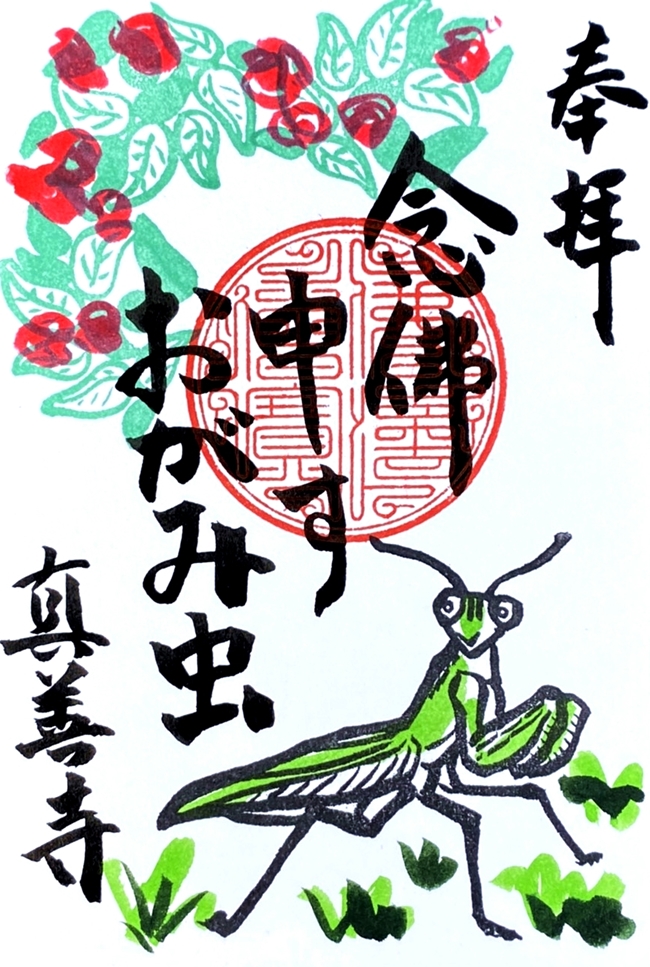 奉拝
念佛
申す
おがみ虫
真善寺